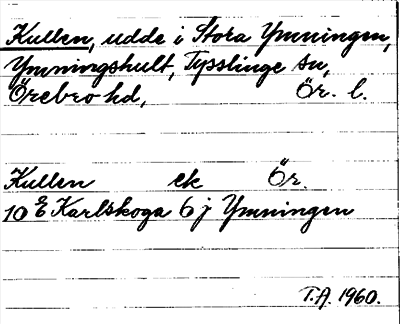 Kullen, udde i Stora Ymningen,
Ymningshult, Tysslinge sn,
Örebro hd, Ör. l.
Kullen ek Ör.
10 E Karlskoga 6 j Ymningen
T.A. 1960.